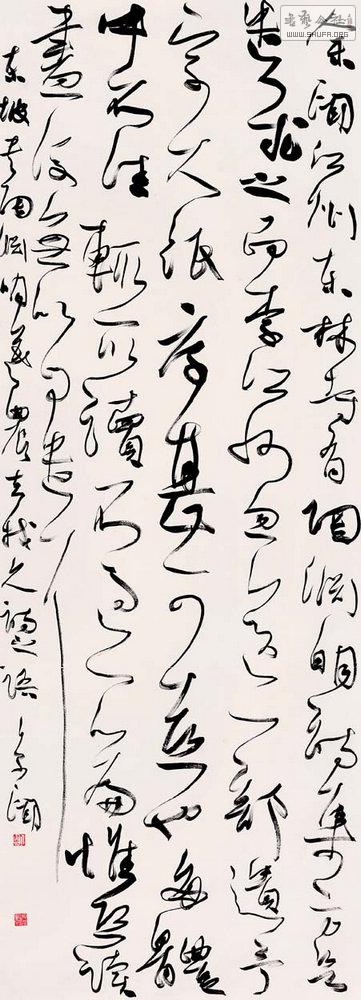 余聞江州東林寺有陶淵明詩集方欲
遣人求之而李江州忽送一部遺予
字大紙厚甚可喜也每體
中不佳輒取讀不過一篇惟恐讀
盡後無以自遣耳
東坡書陶淵明羲農去我久詩之語
WWW.SHUFA.ORG